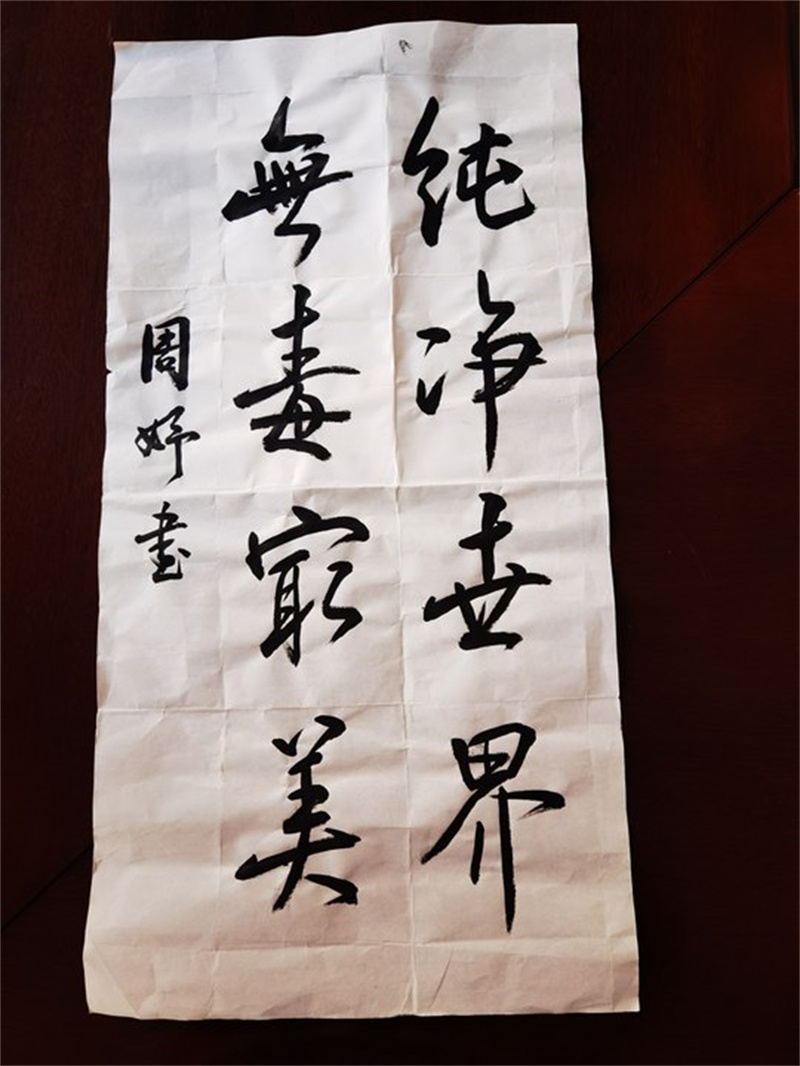 纯净世界
無毒最美
周妤書